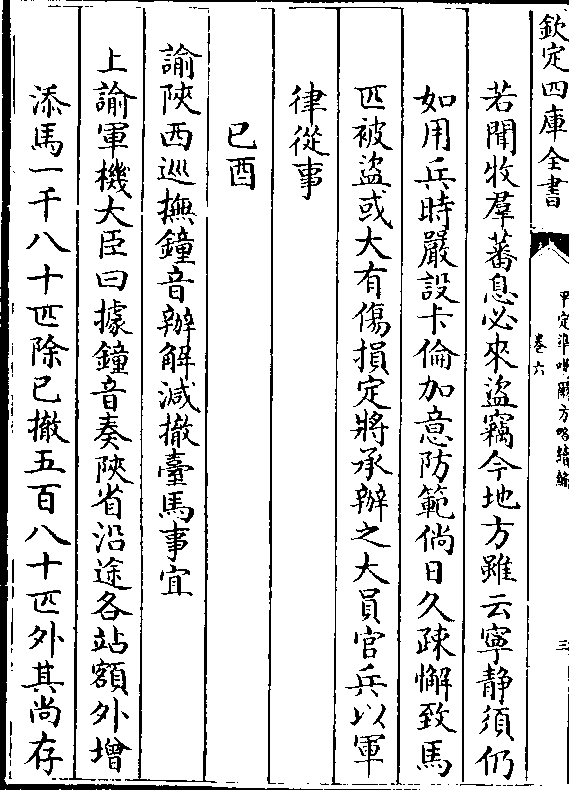 欽定四庫全書
平定準噶爾方畧續編
卷六
三
若聞牧羣蕃息必來盜竊今地方雖云寧静須仍
如用兵時嚴設卡倫加意防範倘日久疎懈致馬
匹被盜或大有傷損定將承辦之大員官兵以軍
律從事
已酉
諭陜西巡撫鐘音辦解減撤臺馬事宜
上諭軍機大臣曰據鐘音奏陜省沿途各站額外增
添馬一千八十匹除已撤五百八十匹外其尚存